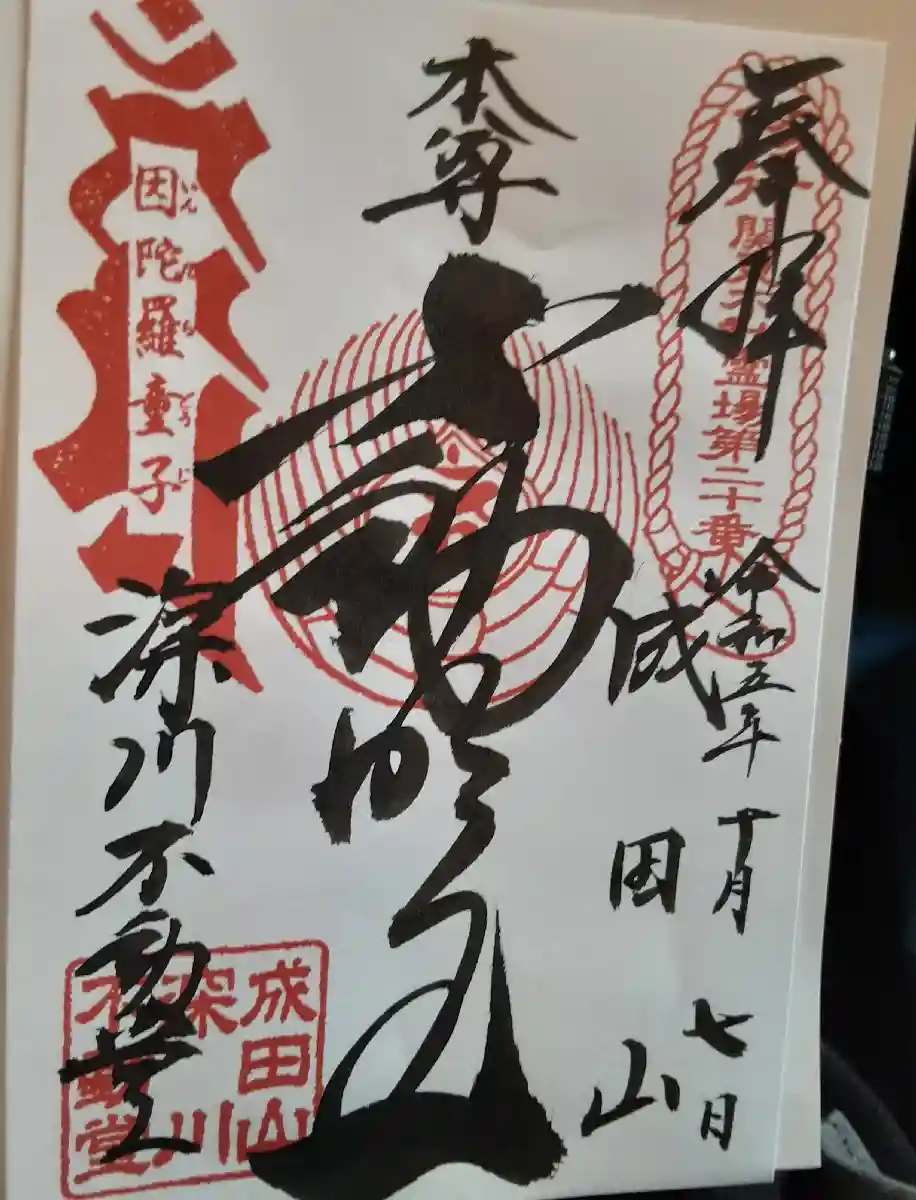 奉拝
関東三十六不動霊場第二十番
令和五年
十月
七日
成田山
本尊
不動明王
因陀羅童子
いんだらどうじ
深川不動堂
成田山
深川
不動堂